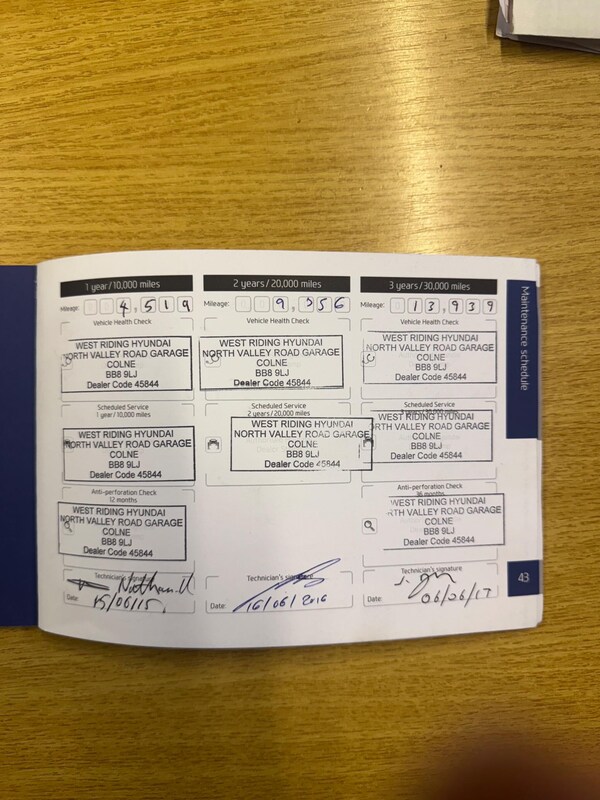 1 year/10,000 miles
Mileage: 4,519
Vehicle Health Check
WEST RIDING HYUNDAI
NORTH VALLEY ROAD GARAGE
COLNE
BB8 9LJ
Dealer Code 45844
Scheduled Service
1 year/10,000 miles
WEST RIDING HYUNDAI
NORTH VALLEY ROAD GARAGE
COLNE
BB8 9LJ
Dealer Code 45844
Anti-perforation Check
12 months
WEST RIDING HYUNDAI
NORTH VALLEY ROAD GARAGE
COLNE
BB8 9LJ
Dealer Code 45844
Technician's signature
Date: 15/06/15
2 years/20,000 miles
Mileage: 9,356
Vehicle Health Check
WEST RIDING HYUNDAI
NORTH VALLEY ROAD GARAGE
COLNE
BB8 9LJ
Dealer Code 45844
Scheduled Service
2 years/20,000 miles
WEST RIDING HYUNDAI
NORTH VALLEY ROAD GARAGE
COLNE
BB8 9LJ
Dealer Code 45844
Technician's signature
Date: 16/06/2016
3 years/30,000 miles
Mileage: 13,939
Vehicle Health Check
WEST RIDING HYUNDAI
NORTH VALLEY ROAD GARAGE
COLNE
BB8 9LJ
Dealer Code 45844
Scheduled Service
3 years/30,000 miles
WEST RIDING HYUNDAI
NORTH VALLEY ROAD GARAGE
COLNE
BB8 9LJ
Dealer Code 45844
Anti-perforation Check
36 months
WEST RIDING HYUNDAI
NORTH VALLEY ROAD GARAGE
COLNE
BB8 9LJ
Dealer Code 45844
Technician's signature
Date: 06/06/17
Maintenance schedule
43